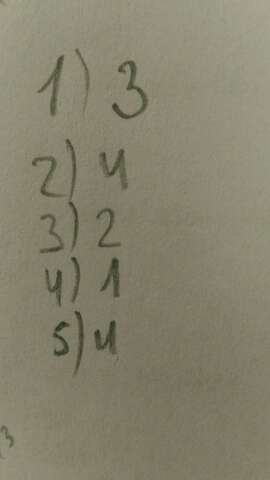 1) 3
2) 4
3) 2
4) 1
5) 4